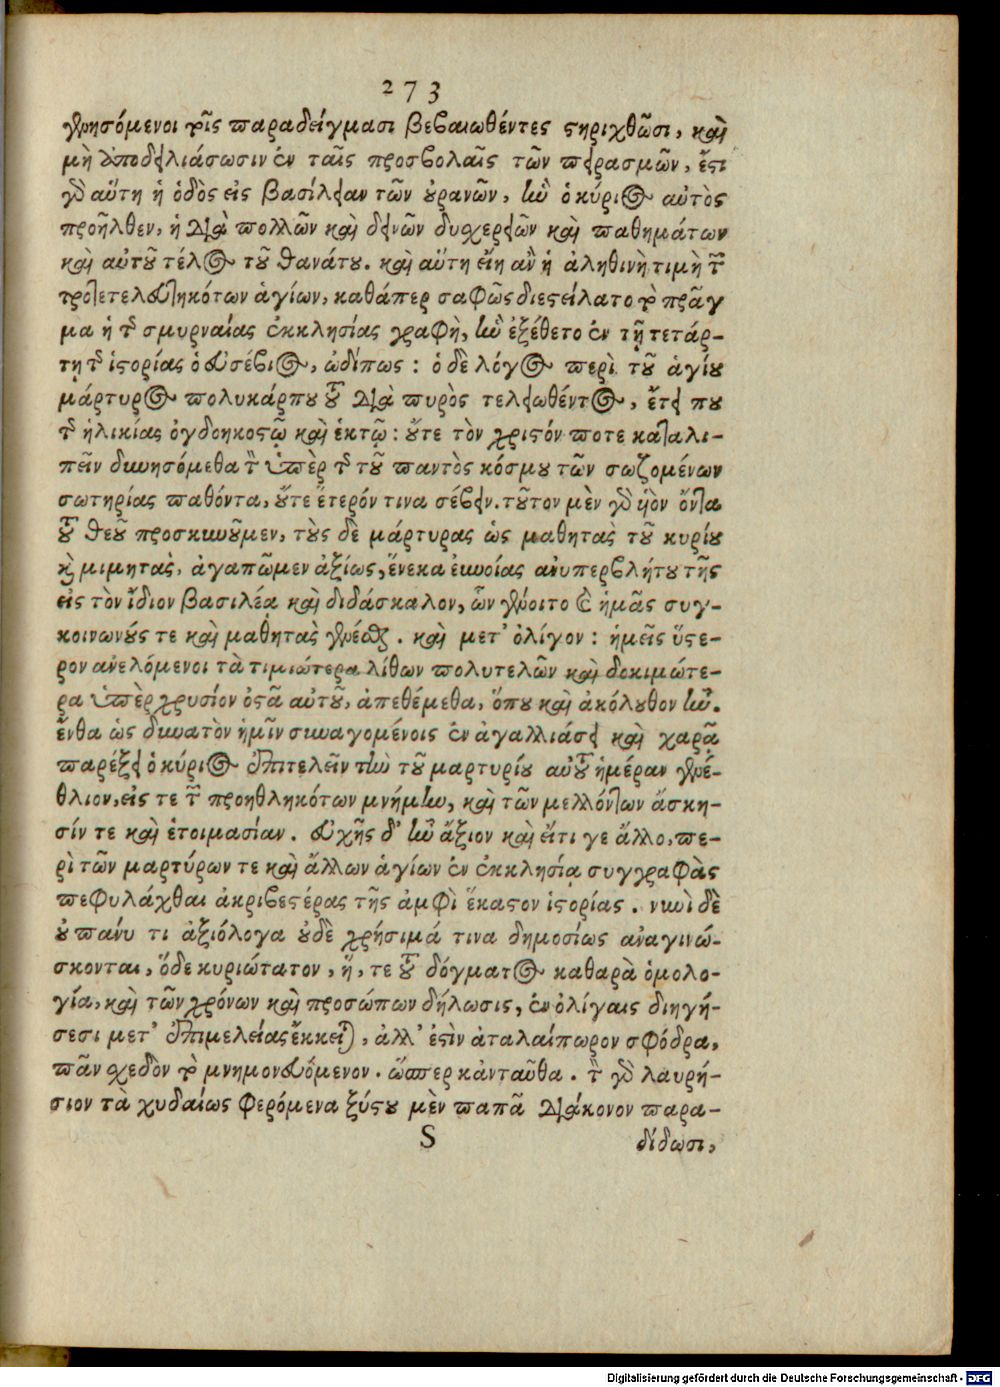 273
χρησόμενοι τοῖς παραδείγμασι βεβαιωθέντες στηριχθῶσι, καὶ
μὴ ἀποδειλιάσωσιν ἐν ταῖς προσβολαῖς τῶν πειρασμῶν, ἔστι
γὰρ αὕτη ἡ ὁδὸς εἰς βασίλειαν τῶν οὐρανῶν, ἣν ὁ κύριος αὐτὸς
προῆλθεν, ἡ διὰ πολλῶν καὶ δεινῶν δυσχερειῶν καὶ παθημάτων
καὶ αὐτοῦ τέλος τοῦ θανάτου. καὶ αὕτη εἴη ἂν ἡ ἀληθινὴ τιμὴ τῶν
προτετελευτηκότων ἁγίων, καθάπερ σαφῶς διεστείλατο τὸ πρᾶγ
μα ἡ τῆς σμυρναίας ἐκκλησίας γραφὴ, ἣν ἐξέθετο ἐν τῇ τετάρ-
τῃ τῆς ἱστορίας ὁ εὐσέβιος, ὡδίπως: ὁ δὲ λόγος περὶ τοῦ ἁγίου
μάρτυρος πολυκάρπου τοῦ διὰ πυρὸς τελειωθέντος, ἔτει που
τῆς ἡλικίας ὀγδοηκοστῷ καὶ ἑκτῷ: οὔτε τὸν χριστόν ποτε καταλι-
πεῖν δυνησόμεθα τὸν ὑπὲρ τῆς τοῦ παντὸς κόσμου τῶν σωζομένων
σωτηρίας παθόντα, οὔτε ἕτερόν τινα σέβειν. τοῦτον μὲν γὰρ υἱὸν ὄντα
τοῦ θεοῦ προσκυνοῦμεν, τοὺς δὲ μάρτυρας ὡς μαθητὰς τοῦ κυρίου
καὶ μιμητὰς, ἀγαπῶμεν ἀξίως, ἕνεκα ἐυνοίας ἀνυπερβλήτου τῆς
εἰς τὸν ἴδιον βασιλέα καὶ διδάσκαλον, ὧν γένοιτο καὶ ἡμᾶς συγ-
κοινωνούς τε καὶ μαθητὰς γενέσθαι. καὶ μετ' ὀλίγον: ἡμεῖς ὕστε-
ρον ἀνελόμενοι τὰ τιμιώτερα λίθων πολυτελῶν καὶ δοκιμώτε-
ρα ὑπὲρ χρυσίον ὀστᾶ αὐτοῦ, ἀπεθέμεθα, ὅπου καὶ ἀκόλουθον ἦν.
ἔνθα ὡς δυνατὸν ἡμῖν συναγομένοις ἐν ἀγαλλιάσει καὶ χαρᾷ
παρέξει ὁ κύριος ἐπιτελεῖν τὴν τοῦ μαρτυρίου αὐτοῦ ἡμέραν γενέ-
θλιον, εἰς τε τῶν προηθληκότων μνήμην, καὶ τῶν μελλόντων ἄσκη-
σίν τε καὶ ἑτοιμασίαν. εὐχῆς δ' ἦν ἄξιον καὶ εἴτι γε ἄλλο, πε-
ρὶ τῶν μαρτύρων τε καὶ ἄλλων ἁγίων ἐν ἐκκλησίᾳ συγγραφὰς
πεφυλάχθαι ἀκριβεστέρας τῆς ἀμφὶ ἕκαστον ἱστορίας. νυνὶ δὲ
οὐ πάνυ τι ἀξιόλογα οὐδὲ χρήσιμά τινα δημοσίως ἀναγινώ-
σκονται, ὅδε κυριώτατον, ἥ, τε τοῦ δόγματος καθαρὰ ὁμολο-
γία, καὶ τῶν χρόνων καὶ προσώπων δήλωσις, ἐν ὀλίγαις διηγή-
σεσι μετ' ἐπιμελείας ἔκκειται, ἀλλ' ἐστὶν ἀταλαίπωρον σφόδρα,
πᾶν σχεδὸν τὸ μνημονευόμενον. ὥσπερ κἀνταῦθα. τὸν γὰρ λαυρή-
σιον τὰ χυδαίως φερόμενα ξύστου μὲν παπᾶ διάκονον παρα-
S
δίδωσι,